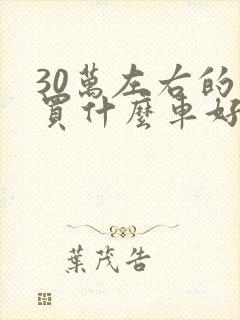 30萬左右的
買什麼車好
葉茂告